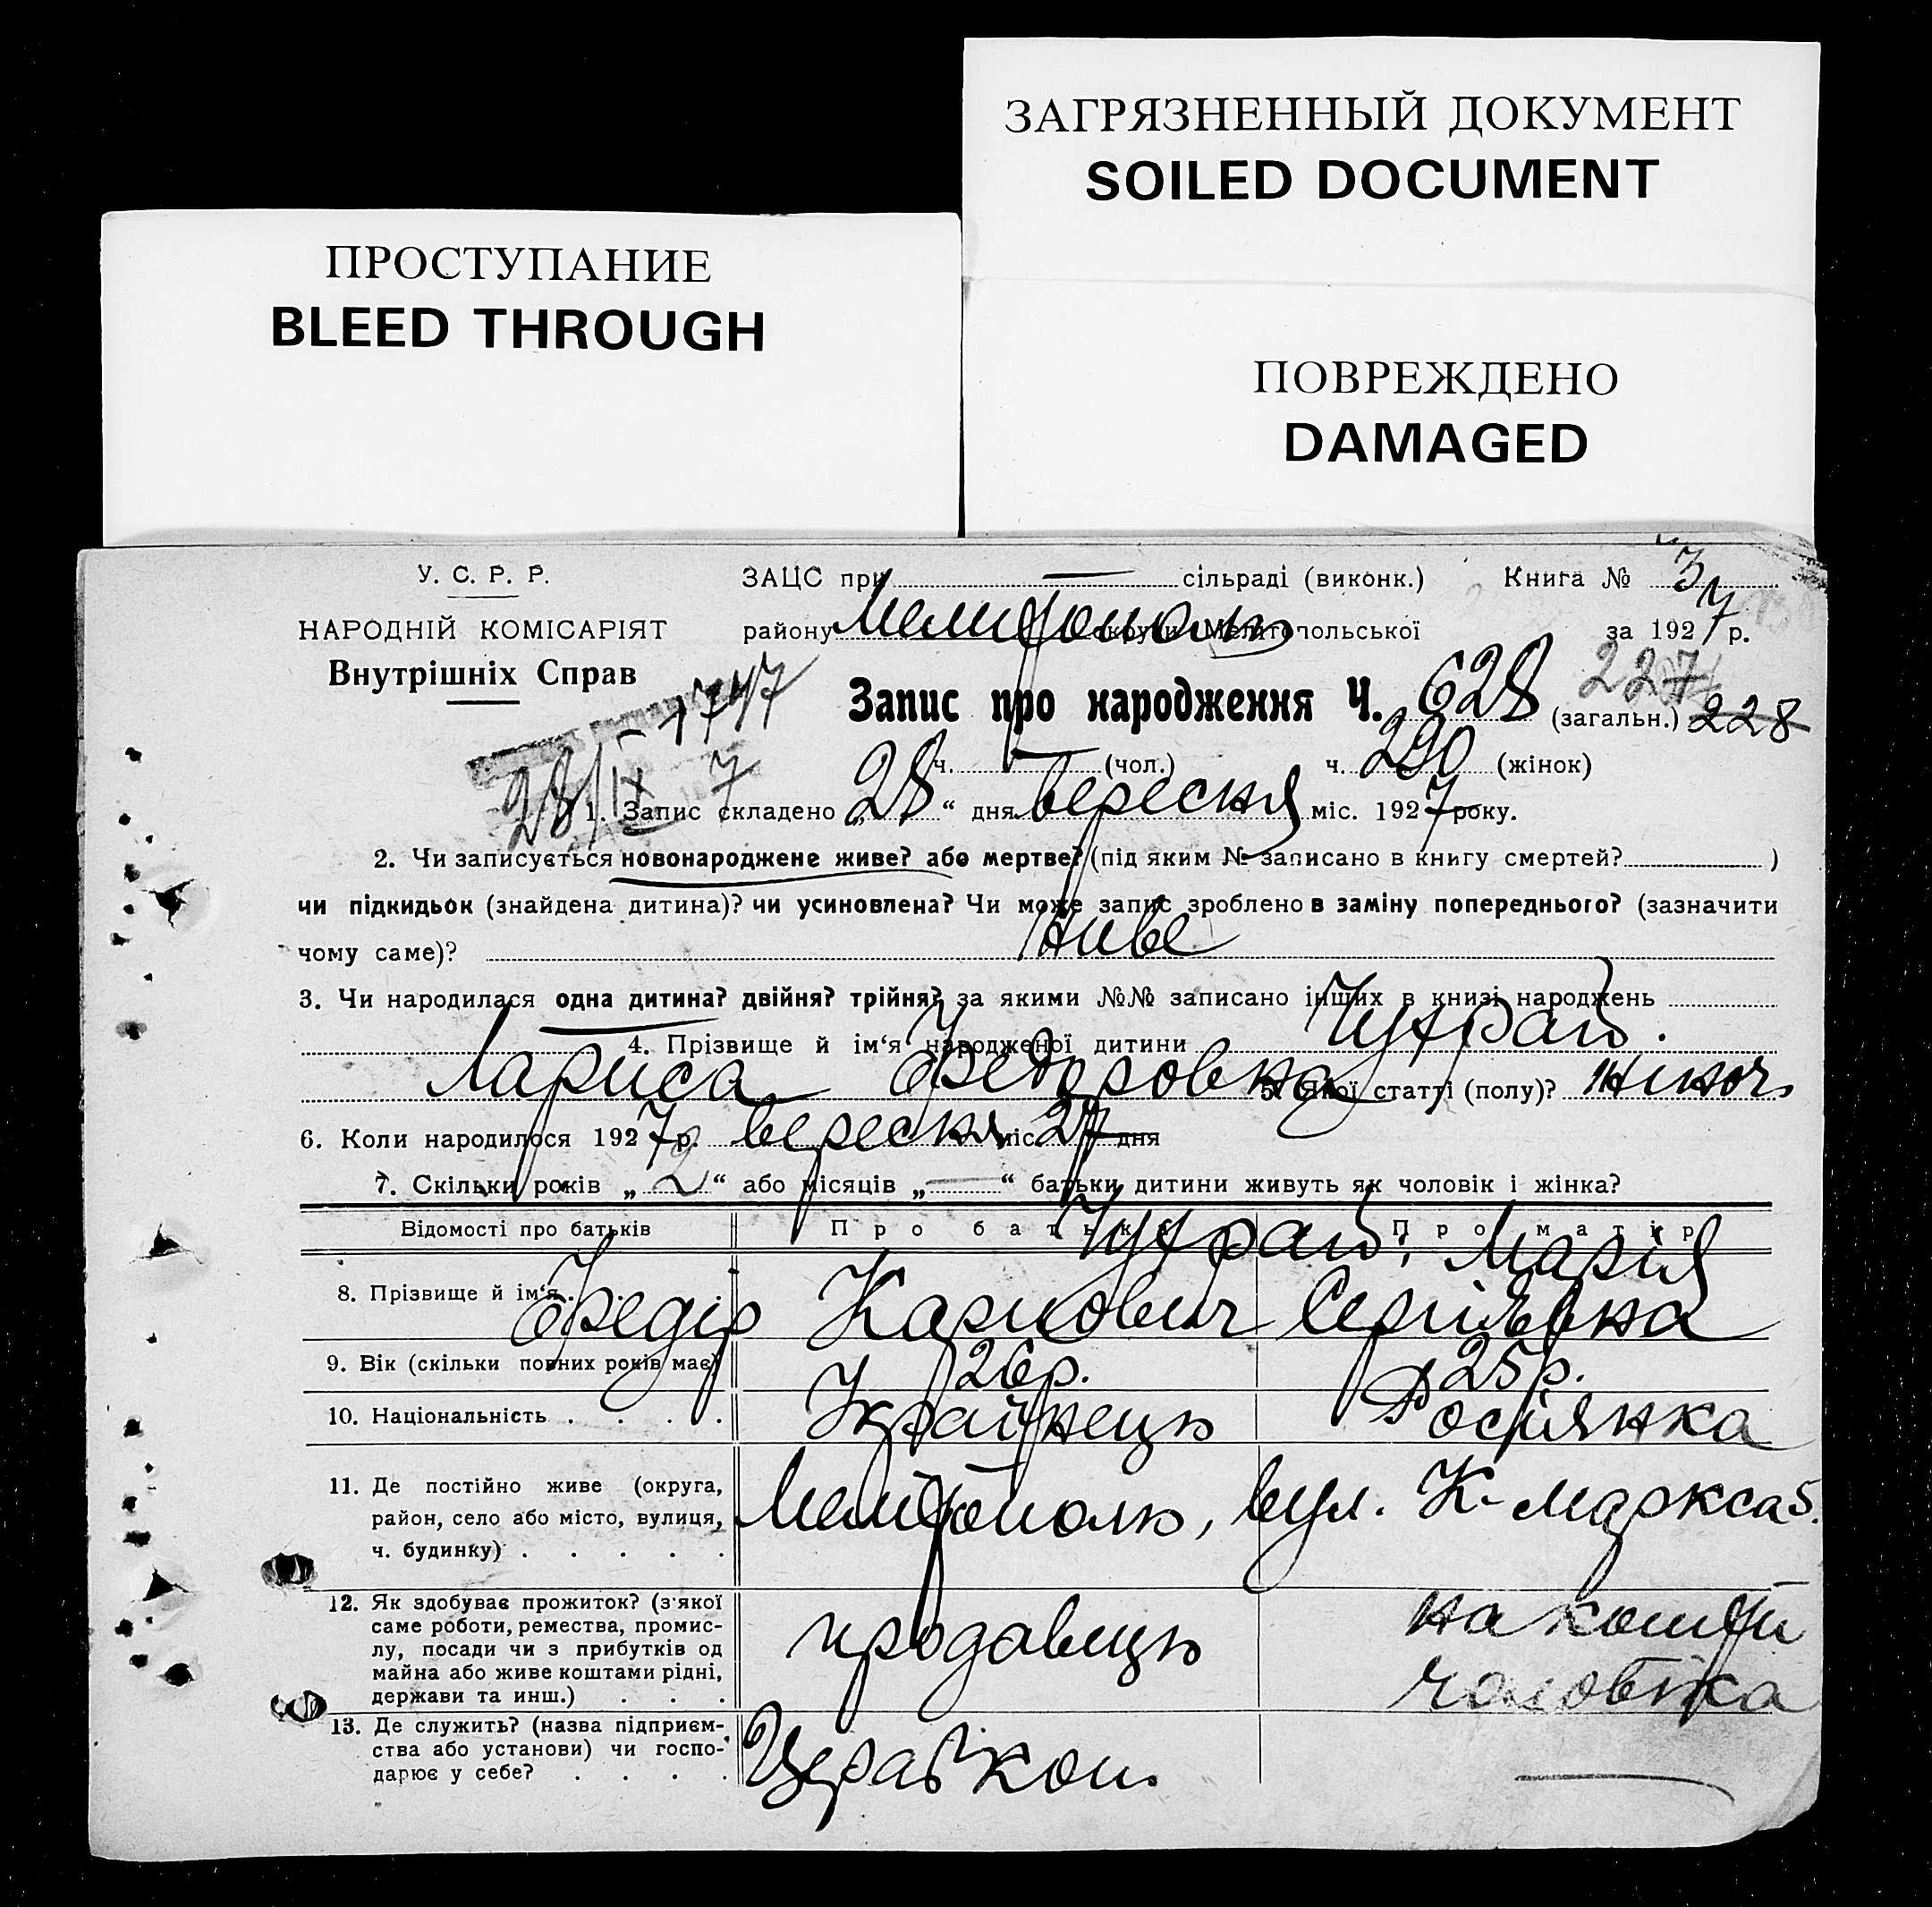 ЗАГРЯЗНЕННЫЙ ДОКУМЕНТ
SOILED DOCUMENT
ПРОСТУПАНИЕ
BLEED THROUGH
ПОВРЕЖДЕНО
DAMAGED
У. С. Р. Р.
НАРОДНІЙ КОМІСАРІЯТ
Внутрішніх Справ
ЗАЦС при — сільраді (виконк.) Книга № 3
району Мелитополь округи Мелітопольської за 1927 р.
1747
28/IX 7
Запис про народження Ч. 628 (загальн.) 227 228
ч. — (чол.) ч. 290 (жінок)
1. Запис складено „28“ дня Вересня міс. 1927 року.
2. Чи записується новонароджене живе? або мертве? (під яким № записано в книгу смертей? )
чи підкидьок (знайдена дитина)? чи усиновлена? Чи може запис зроблено в заміну попереднього? (зазначити
чому саме)? Живе
3. Чи народилася одна дитина? двійня? трійня? за якими №№ записано інших в книзі народжень
4. Прізвище й ім‘я народженої дитини Чухрай.
Лариса Федоровна 5. Якої статті (полу)? жіноч.
6. Коли народилося 1927 р. вересня міс. 27 дня
7. Скільки років „2“ або місяців „—“ батьки дитини живуть як чоловік і жінка?
Відомості про батьків Про батька Про матір
8. Прізвище й ім‘я Чухрай: Федір Карпович Марія Сергіївна
9. Вік (скільки повних років має) 26р. 25р.
10. Національність . . . . Українець Росіянка
11. Де постійно живе (округа,
район, село або місто, вулиця,
ч. будинку) . . . . . Мелитополь, вул. К-Маркса 5.
12. Як здобуває прожиток? (з якої
саме роботи, ремества, промис-
лу, посади чи з прибутків од
майна або живе коштами рідні,
держави та инш.) . . . продавець на кошти чоловіка
13. Де служить? (назва підприєм-
ства або установи) чи госпо-
дарює у себе? . . . . Церабкоп. —